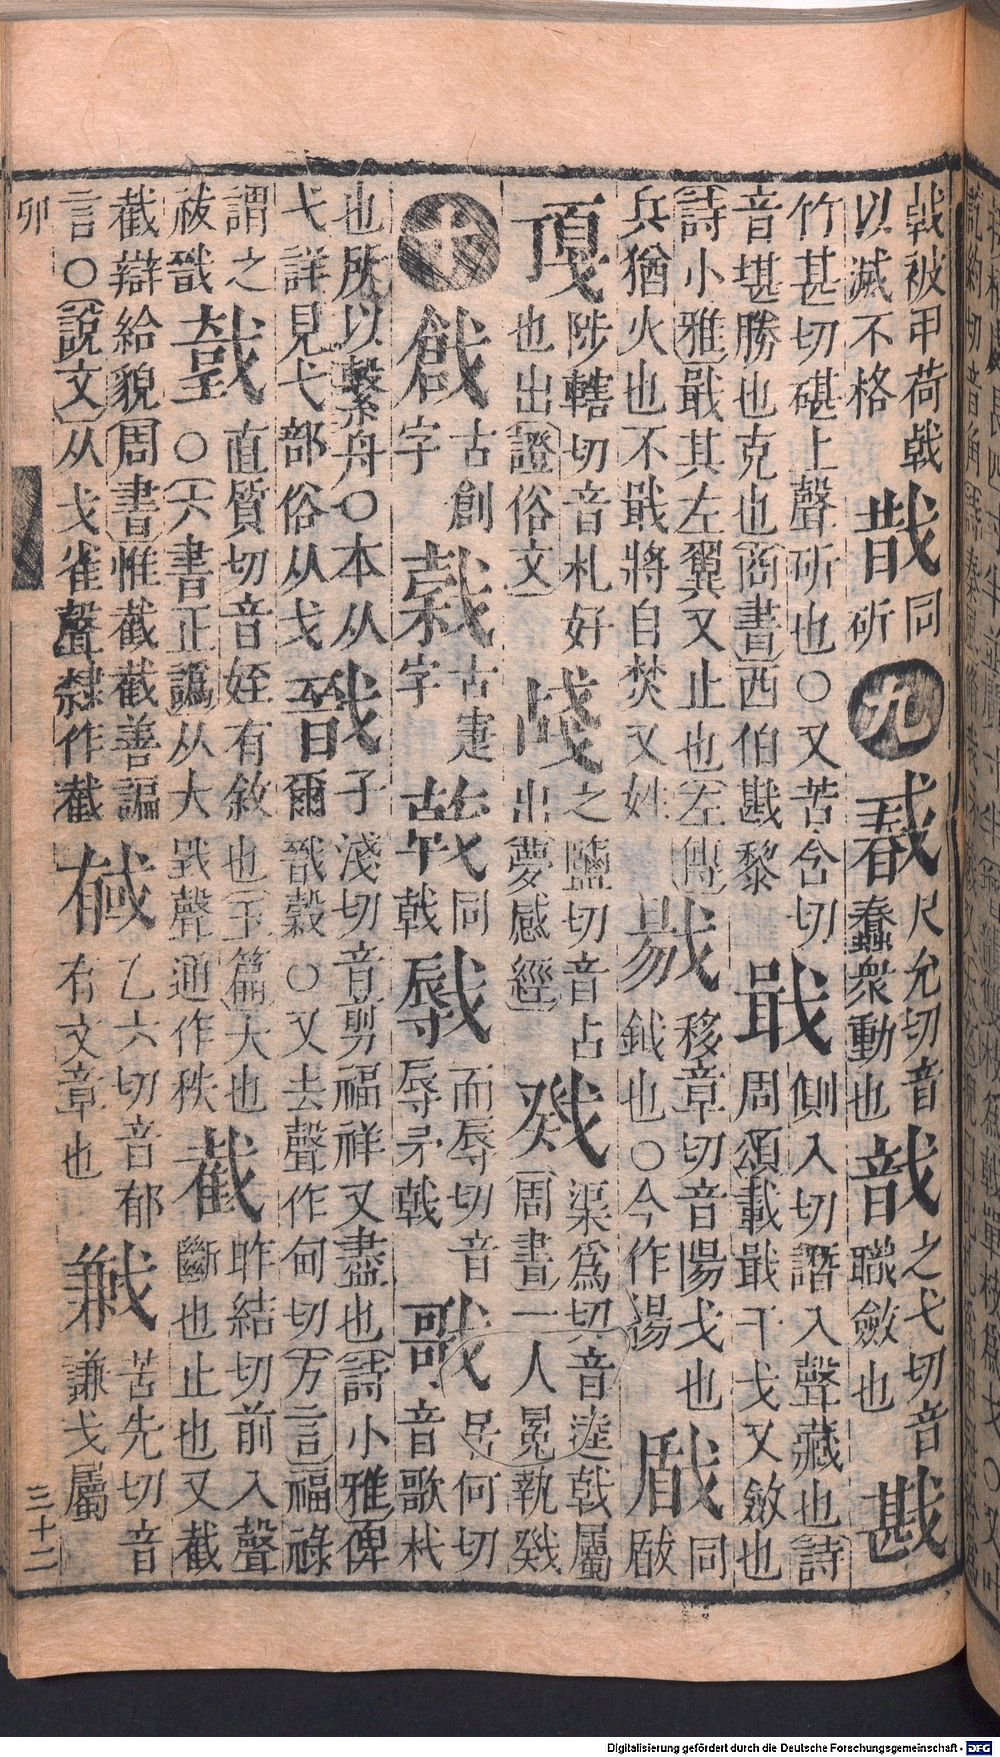 戟被甲荷戟
以滅不格
同斫
九
尺允切音
蠢衆動也
戠
之弋切音
職斂也
戡
竹甚切碪上聲斫也○又苦含切
音堪勝也克也商書西伯戡黎
戢
側入切譖入聲藏也詩
周頌載戢干戈又斂也
詩小雅戢其左翼又止也左傳
兵猶火也不戢將自焚又姓
移章切音陽戈也
鉞也○今作湯
瞂
同
陟轄切音札好
也出證俗文
之鹽切音占
出夢感經
戣
渠爲切音逵戟屬
周書一人冕執戣
十
戧
古創
字
古疌
字
同
戟
而辱切音
辱矛戟
戨
居何切
音歌杙
也所以繫舟○本从
弋詳見弋部俗从戈
戩
子淺切音剪福祥又盡也詩小雅俾
爾戩穀○又去聲作甸切方言福祿
謂之
祓戩
直質切音姪有敘也玉篇大也
○六書正譌从大戥聲通作秩
截
昨結切前入聲
斷也止也又截
截辯給貌周書惟截截善諞
言○說文从戈雀聲隸作截
戫
乙六切音郁
有文章也
苦先切音
謙戈屬
卯
三十二
Digitalisierung gefördert durch die Deutsche Forschungsgemeinschaft - DFG